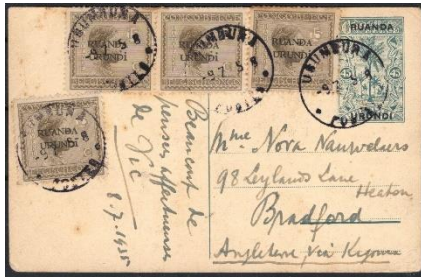 USUMBURA
RUANDA
URUNDI
RUANDA
URUNDI
RUANDA
URUNDI
15
USUMBURA
RUANDA
URUNDI
USUMBURA
RUANDA
URUNDI
Beaucoup de
pensées affectueuses
de Vic
8.7.1935
Mme Nora Nauwelaers
98 Leylands Lane
Heaton
Bradford
Angleterre via Kigoma